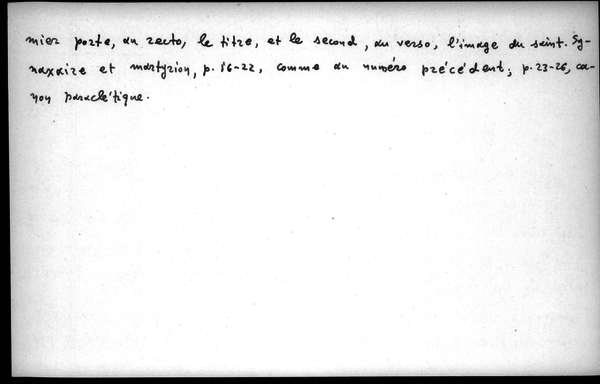 mier porte, au recto, le titre, et le second, au verso, l'image du saint. Sy-
naxaire et martyrion, p. 16-22, comme au numéro précédent; p. 23-26, ca-
non paraclétique.